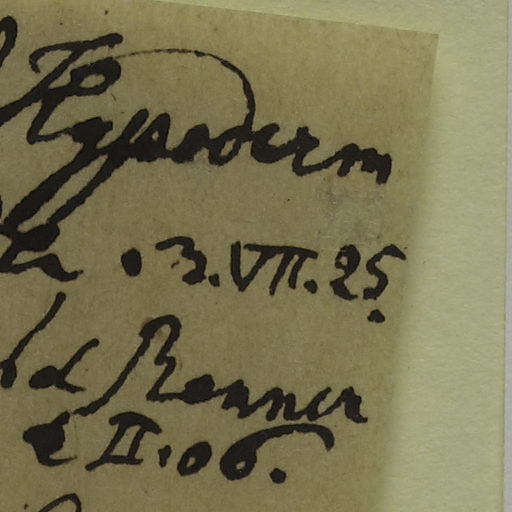 Hypoderm
3.VII.25.
d Renner
e II.06.